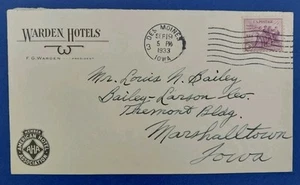 WARDEN HOTELS
W
F. G. WARDEN
DES MOINES
SEP 19
5 PM
1933
IOWA
Mr. Louis N. Bailey
Bailey-Larson Co.
Tremont Bldg.
Marshalltown
Iowa
MEMBER
AMERICAN HOTEL
AHA
ASSOCIATION